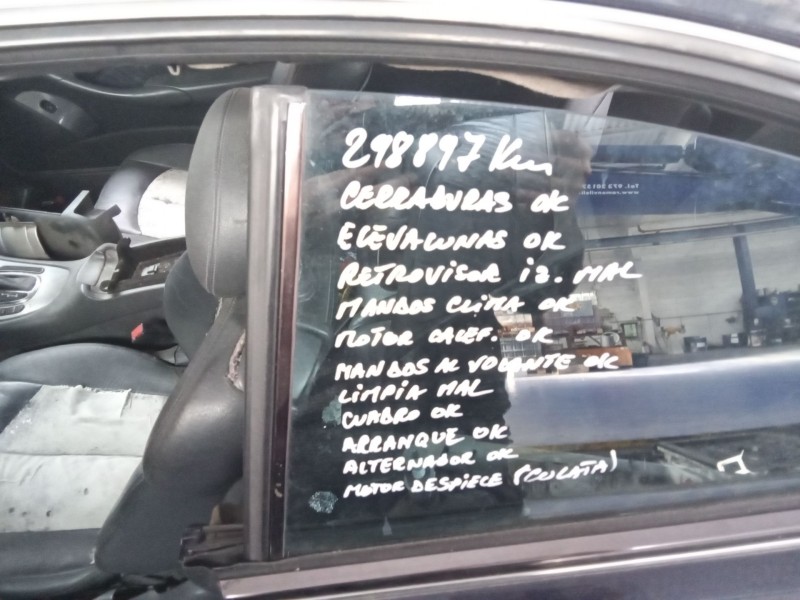 298897 Km
CERRADURAS OK
ELEVALUNAS OK
RETROVISOR iz. MAL
MANDOS CLIMA OK
MOTOR CALEF. OK
MANDOS AL VOLANTE OK
LIMPIA MAL
CUADRO OK
ARRANQUE OK
ALTERNADOR OK
MOTOR DESPIECE (CULATA)